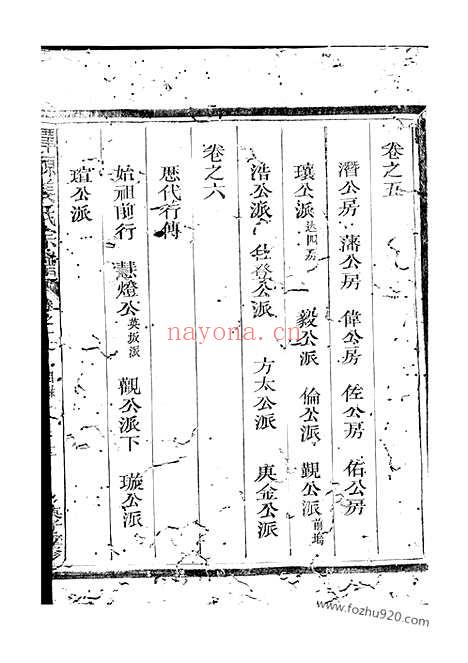 卷之五
潛公房 藩公房 偉公房 佐公房 佑公房
瓌公派 達四房 毅公派 倫公派 覲公派 前塢
浩公派 登公派 方太公派 庚金公派
卷之六
歷代行傳
始祖前行 慧燈公 英坂派 觀公派下 璇公派
瑄公派
nayona.cn
www.fozhu920.com